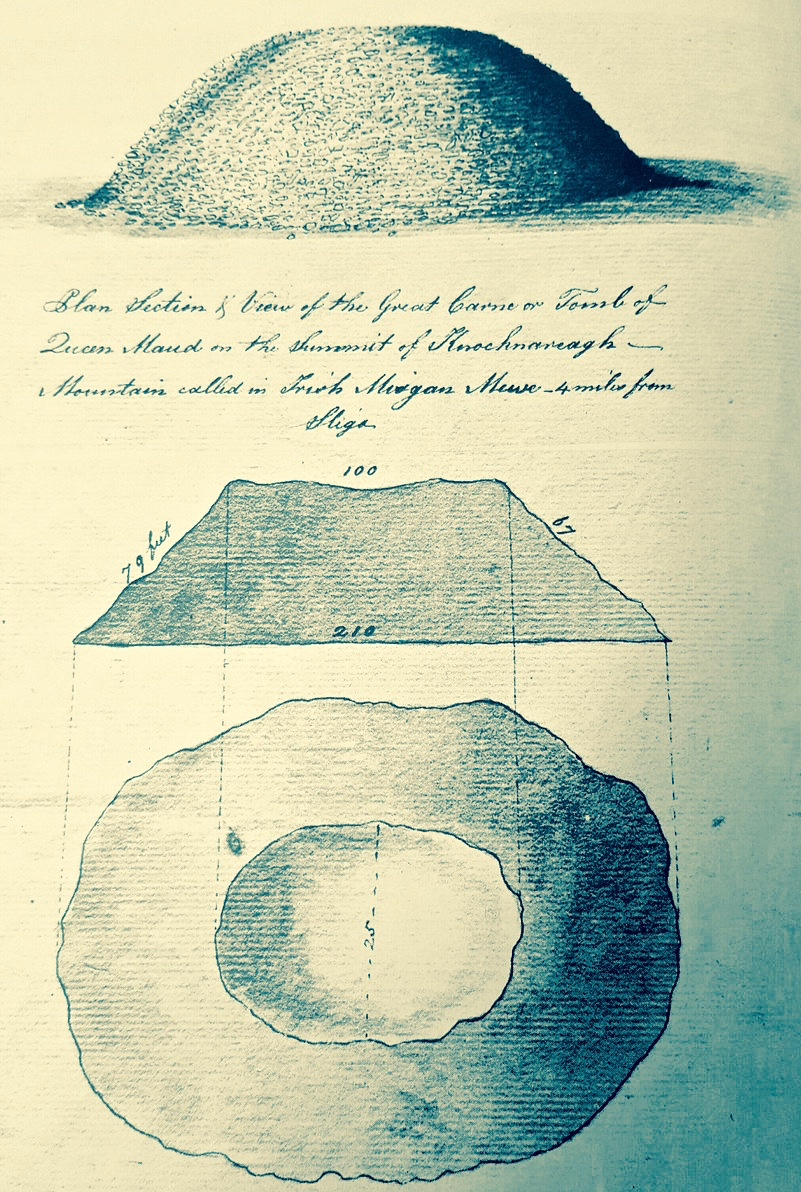 Plan Section & View of the Great Carne or Tomb of
Queen Maud on the Summit of Knocknareagh —
Mountain called in Irish Misgan Mewe - 4 miles from
Sligo
100
79 feet
67
210
25